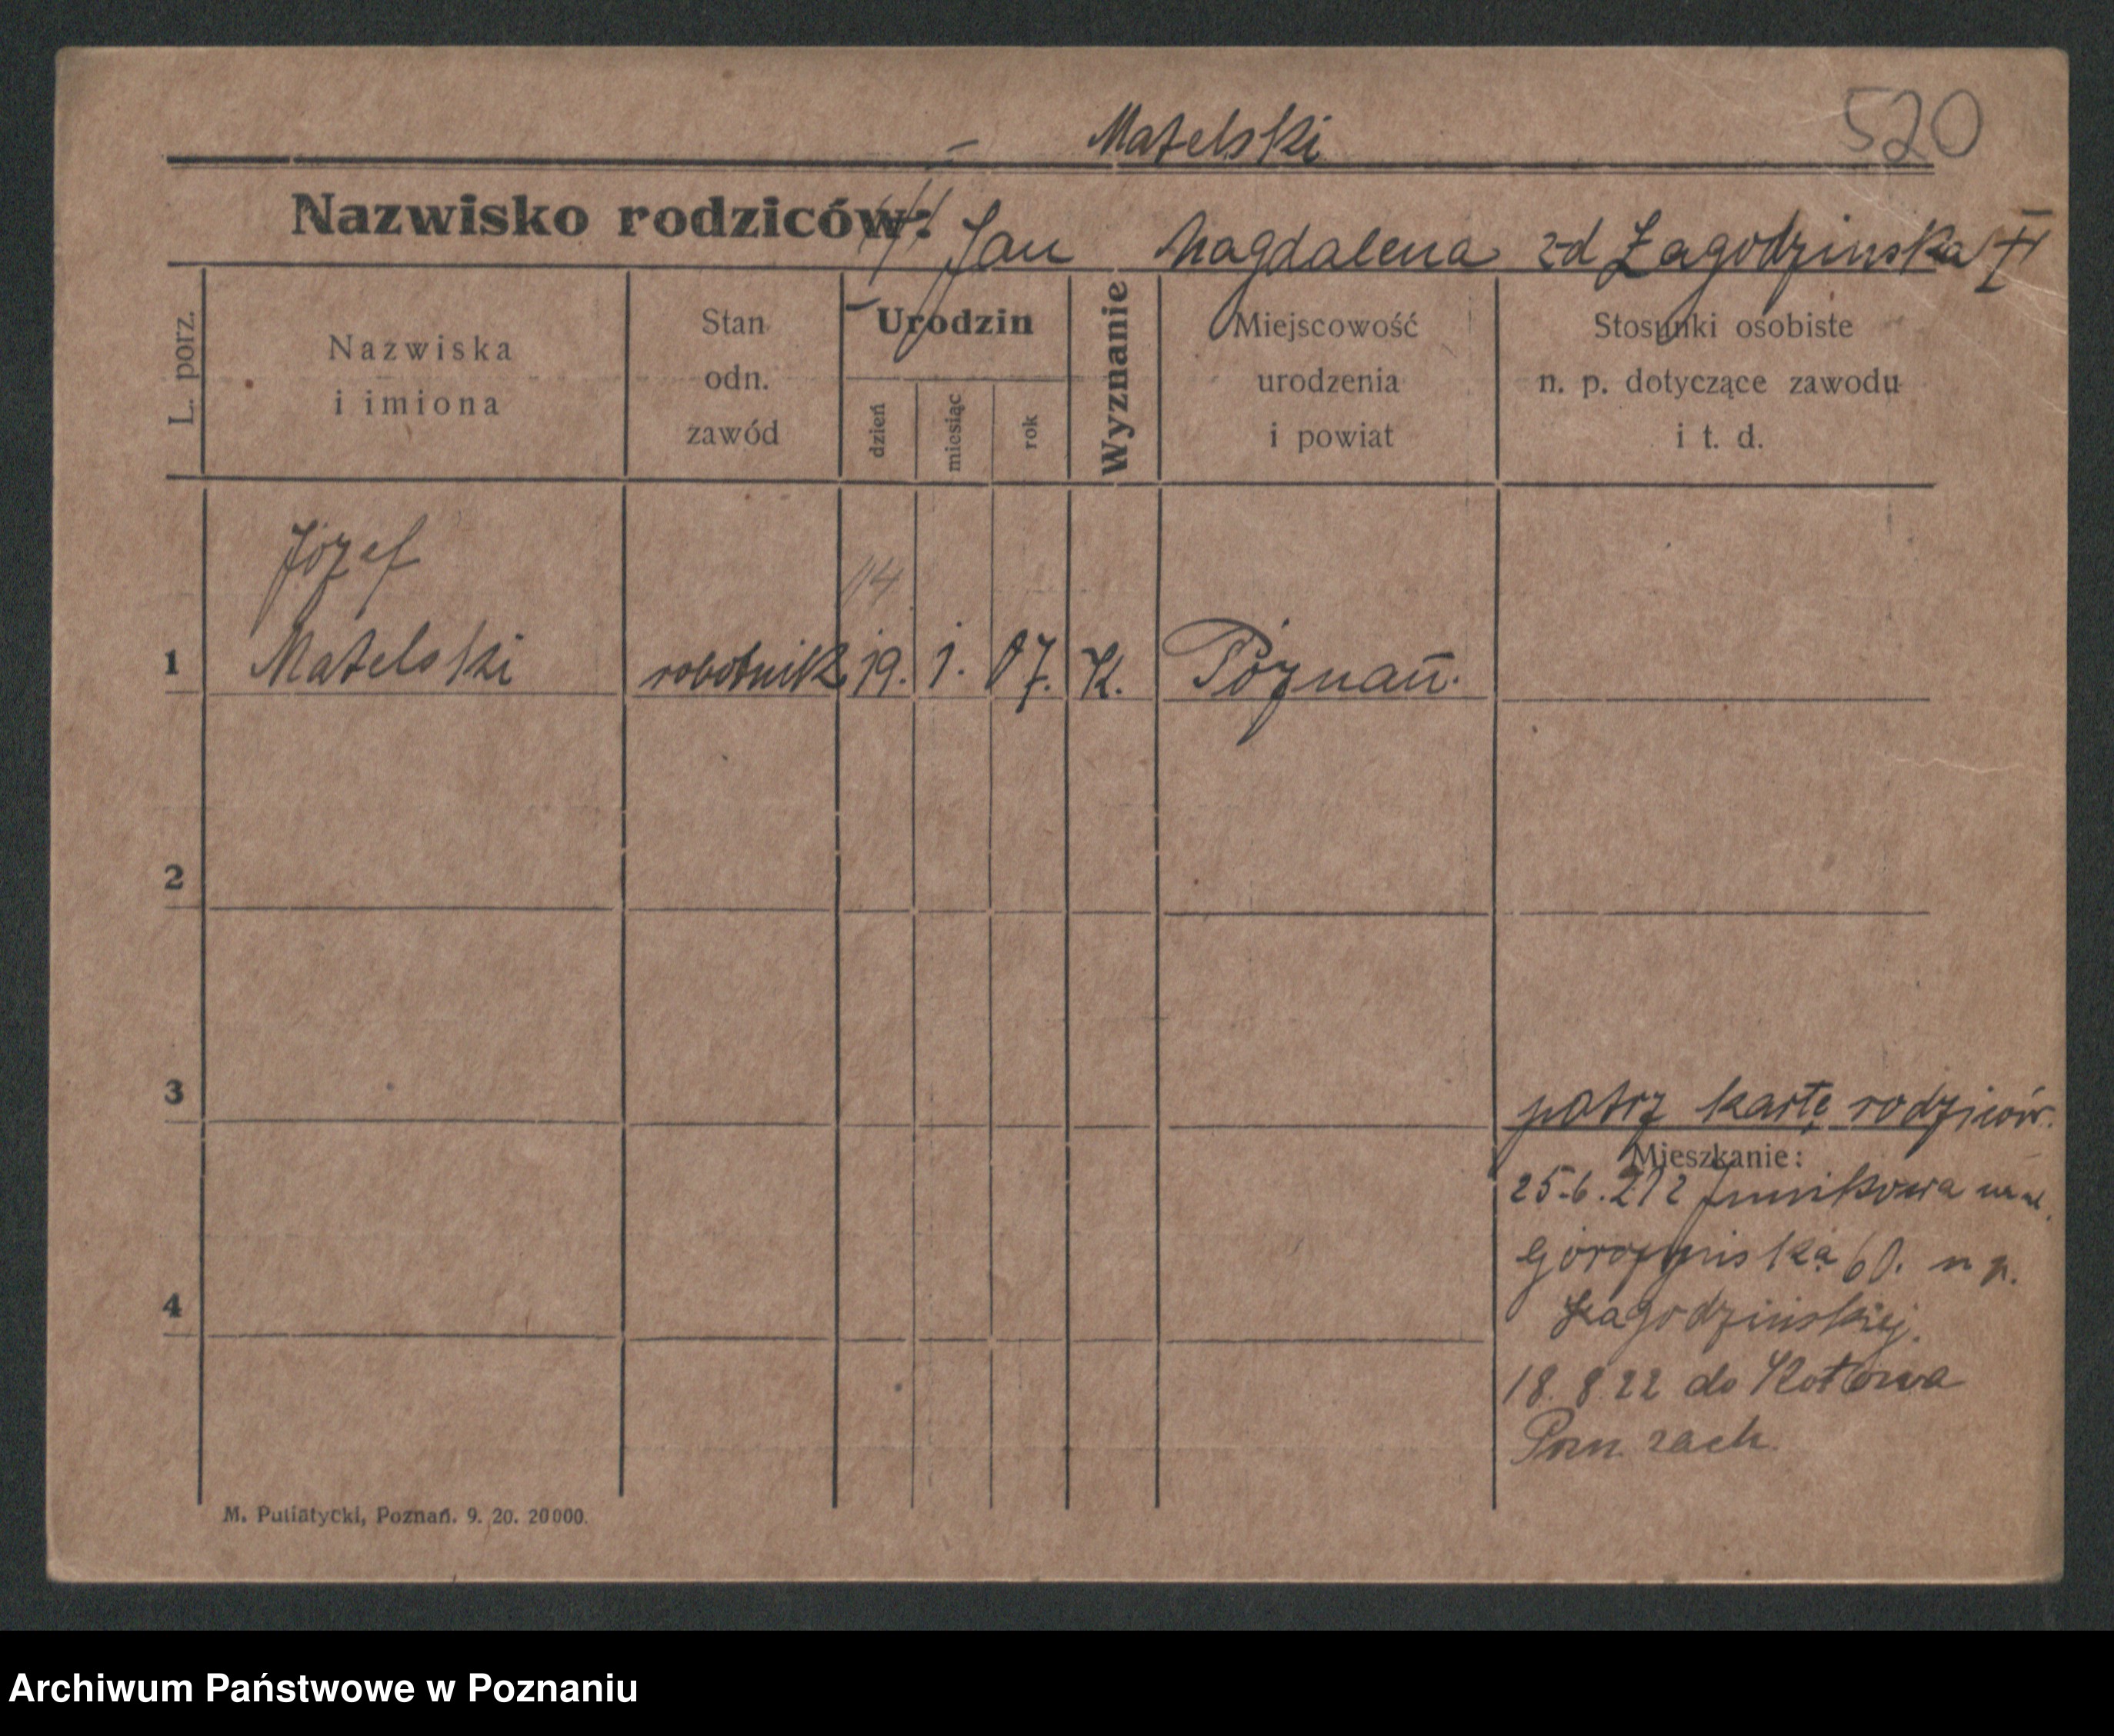 520
Matelski
Nazwisko rodziców: Jan Magdalena zd Łagodzinska
L. porz.
Nazwiska
i imiona
Stan
odn.
zawód
Urodzin
dzień
miesiąc
rok
Wyznanie
Miejscowość
urodzenia
i powiat
Stosunki osobiste
n. p. dotyczące zawodu
i t. d.
Józef
14
1 Matelski robotnik 19. 1. 07. K. Poznań.
2
3
patrz kartę rodziców.
Mieszkanie:
25.6.212 Junikowa
60. n p.
4
Łagodzińskiej.
18.8.22 do Kotowa
Pozn. zach.
M. Putiatycki, Poznań. 9. 20. 20000.
Archiwum Państwowe w Poznaniu